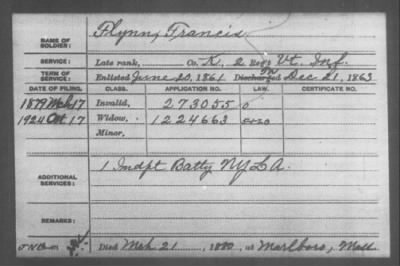 NAME OF SOLDIER: Flynn, Francis
SERVICE: Late rank, Co. K, 2 Reg't Vt. Inf.
TERM OF SERVICE: Enlisted June 20, 1861 Discharged Dec 21, 1863
DATE OF FILING. CLASS. APPLICATION NO. LAW. CERTIFICATE NO.
1879 Mch 17 Invalid, 273055
1924 Oct 17 Widow, 1224663
Minor,
ADDITIONAL SERVICES: 1 Indpt Batty NY L A.
REMARKS:
Died Mch 21, at Marlboro, Mass